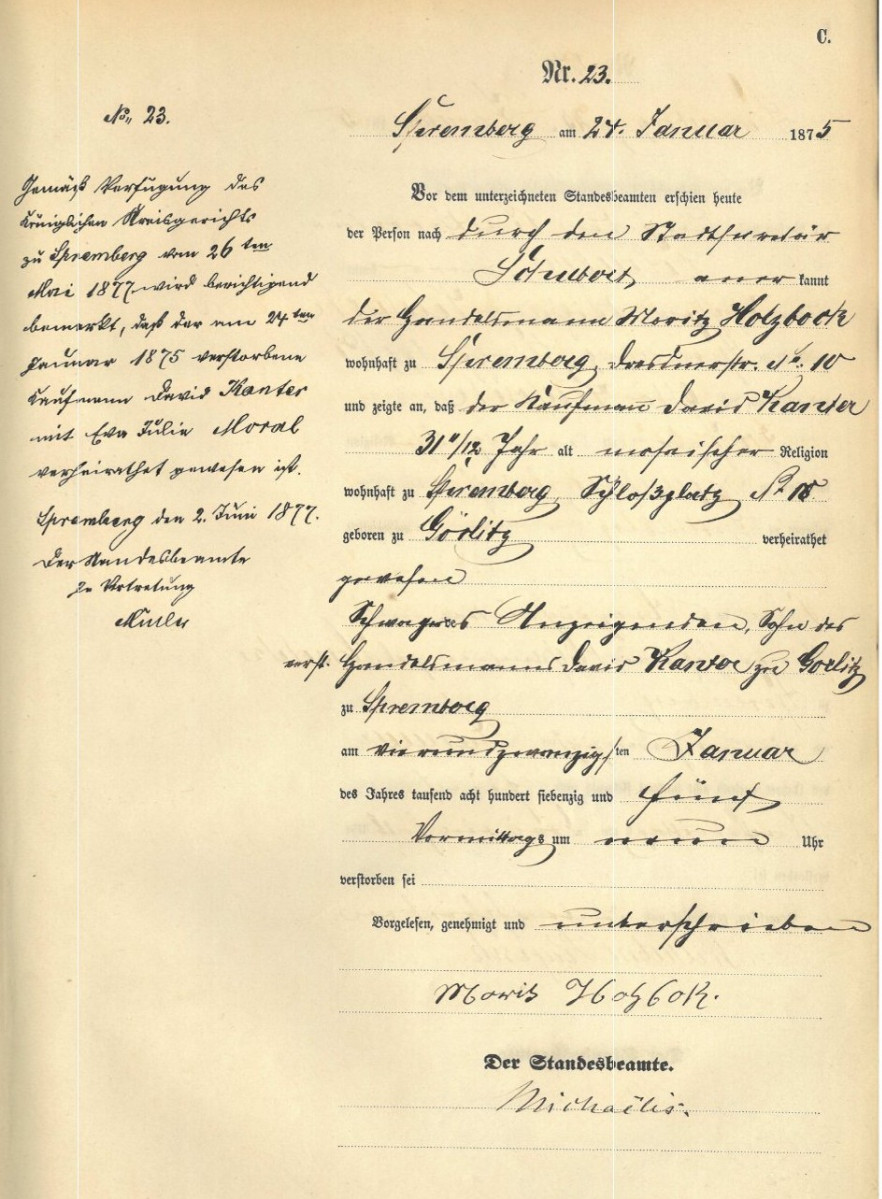 C.
Nr. 23.
Spremberg am 24. Januar 1875
Vor dem unterzeichneten Standesbeamten erschien heute
der Person nach durch den Stadtsecretär
Schubert, aner kannt
der Handelsmann Moritz Holzbock
wohnhaft zu Spremberg, Dresdnerstr. No. 10
und zeigte an, daß der Kaufmann David Kanter
31 11/12 Jahr alt mosaischer Religion
wohnhaft zu Spremberg, Schloßplatz No
geboren zu Görlitz verheirathet
gewesen
Schwager des Anzeigenden, Sohn des
verst. Handelsmanns David Kantor zu Görlitz
zu Spremberg
am vierundzwanzigsten Januar
des Jahres tausend acht hundert siebenzig und fünf
Vormittags um neun Uhr
verstorben sei
Vorgelesen, genehmigt und unterschrieben
Moritz Holzbok.
Der Standesbeamte.
Michaëlis.
No. 23.
Gemäß Verfügung des
Königlichen Kreisgerichts
zu Spremberg vom 26 ten
Mai 1877 wird berichtigend
bemerkt, daß der am 24 ten
Januar 1875 verstorbene
Kaufmann David Kanter
mit Eva Julie Moral
verheirathet gewesen ist.
Spremberg den 2. Juni 1877.
Der Standesbeamte
In Vertretung